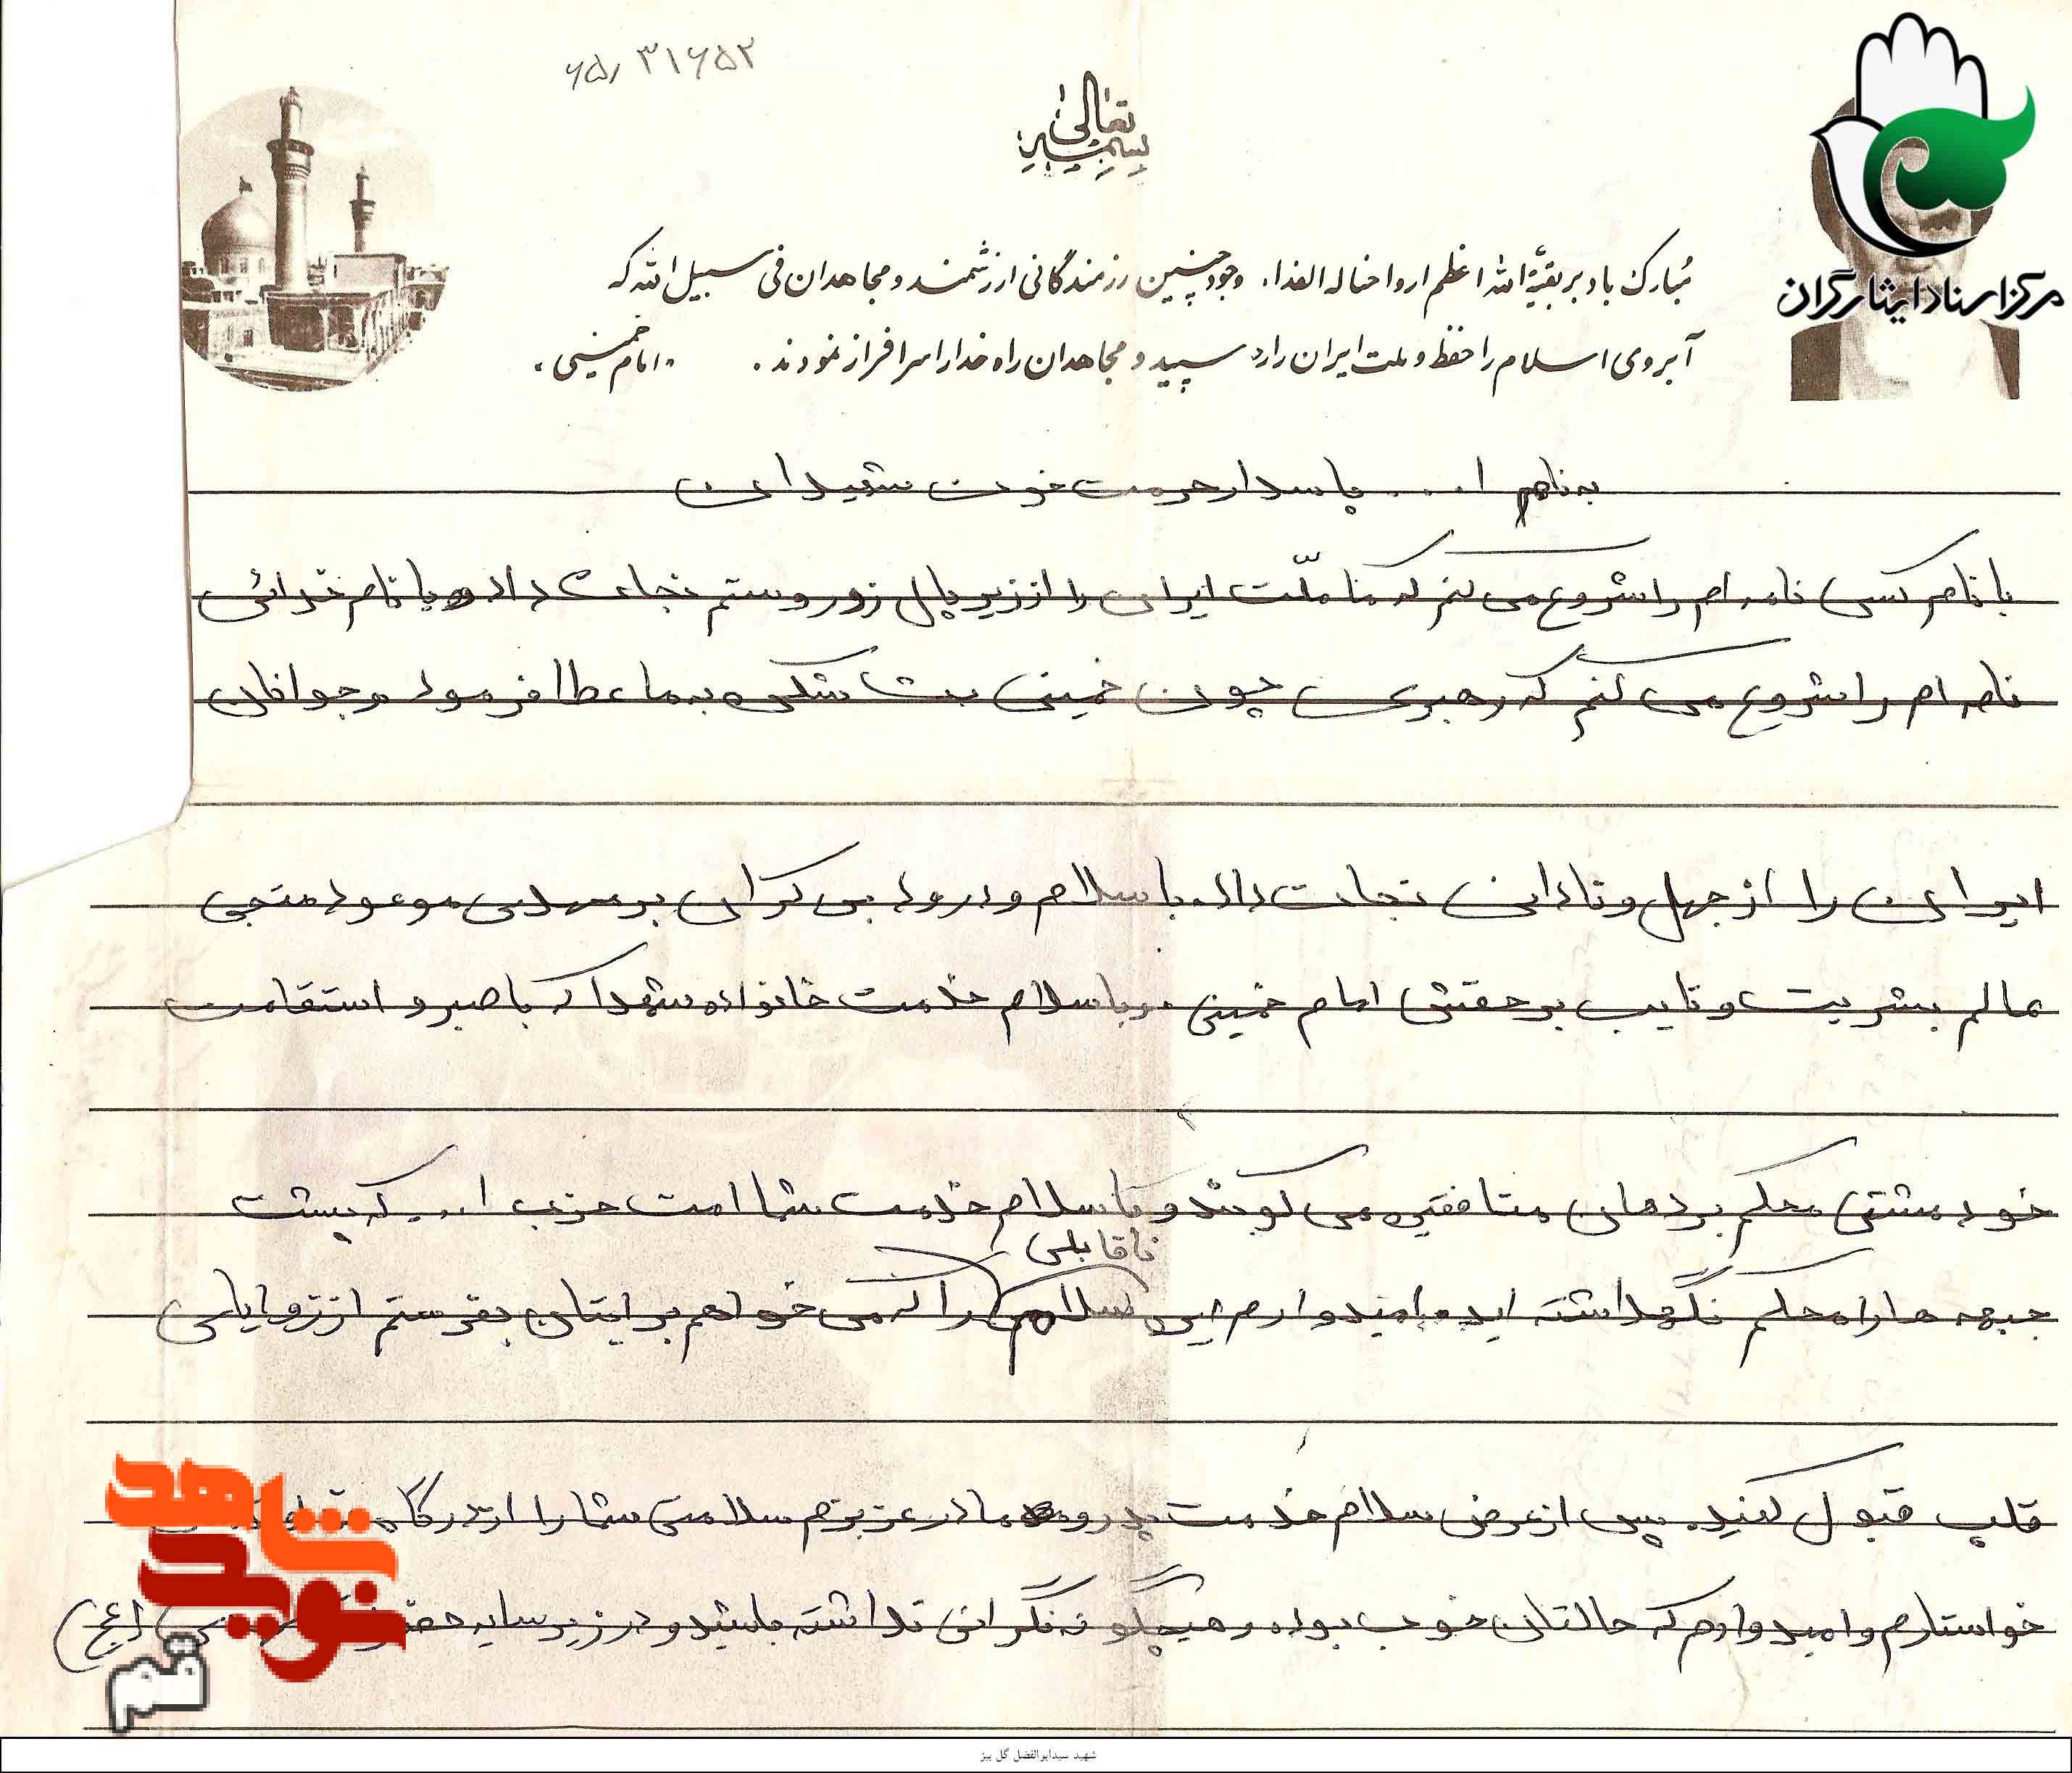 ۶۵٫ ۳۱۶۵۲
بسمه تعالی
مرکز اسناد ایثارگران
مُبارک باد بر بقیّة الله اعظم ارواحنا له الفداء، وجود چنین رزمندگانی ارزشمند و مجاهدان فی سبیل الله که
آبروی اسلام را حفظ و ملت ایران را رو سپید و مجاهدان راه خدا را سرافراز نمودند. «امام خمینی»
به نام ا... پاسدار حرمت خون شهیدان
با نام کسی نامه ام را شروع می کنم که ما ملّت ایران را از زیر پال زور و ستم نجات داد و با نام خدائی
نامه ام را شروع می کنم که رهبری چون خمینی بت شکن به ما عطا فرمود و جوانان
ایران را از جهل و نادانی نجات داد. با سلام و درود بی کران بر مهدی موعود منجی
عالم بشریت و نایب بر حقش امام خمینی و با سلام خدمت خانواده شهدا که با صبر و استقامت
خود مشتی محکم بر دهان منافقین می کوبند و با سلام خدمت شما امت حزب ا... که پشت
ناقابلی
جبهه ها را محکم نگهداشته اید. امیدوارم این سلام را که می خواهم برایتان بفرستم از زوایای
قلب قبول کنید. پس از عرض سلام خدمت پدر و مادر عزیزم سلامتی شما را از درگاه
خواستارم و امیدوارم که حالتان خوب بوده و هیچگونه نگرانی نداشته باشید و در زیر سایه (عج)
نوید شاهد
قم
شهید سیدابوالفضل گل بیز